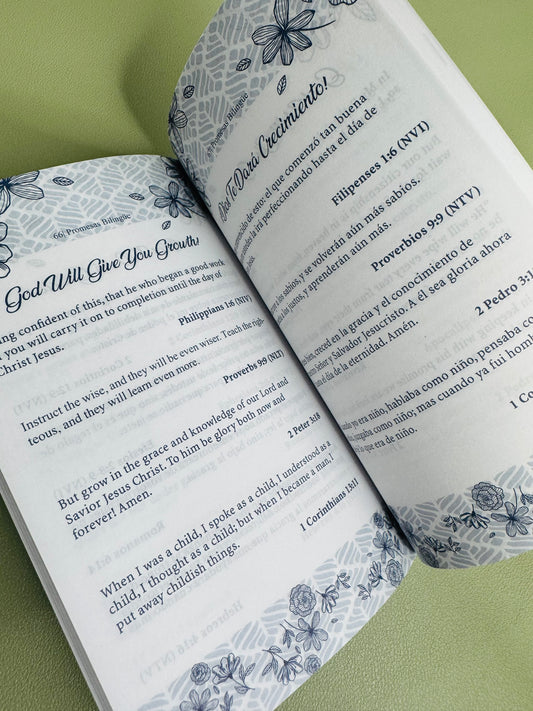 66 Promesas Bilingüe
God Will Give You Growth!
ing confident of this, that he who began a good work
you will carry it on to completion until the day of
Christ Jesus.
Philippians 1:6 (NVI)
Instruct the wise, and they will be even wiser. Teach the righ-
teous, and they will learn even more.
Proverbs 9:9 (NLT)
But grow in the grace and knowledge of our Lord and
Savior Jesus Christ. To him be glory both now and
forever! Amen.
2 Peter 3:18
When I was a child, I spoke as a child, I understood as a
child, I thought as a child; but when I became a man, I
put away childish things.
1 Corinthians 13:11
Promesas Bilingüe
Te Dará Crecimiento!
de esto: el que comenzó tan buena
la irá perfeccionando hasta el día de
Filipenses 1:6 (NVI)
los sabios, y se volverán aún más sabios.
los justos, y aprenderán aún más.
Proverbios 9:9 (NTV)
creced en la gracia y el conocimiento de
Señor y Salvador Jesucristo. A él sea gloria ahora
el día de la eternidad. Amén.
2 Pedro 3:1
yo era niño, hablaba como niño, pensaba co
juzgaba como niño; mas cuando ya fui homb
que era de niño.
1 Co